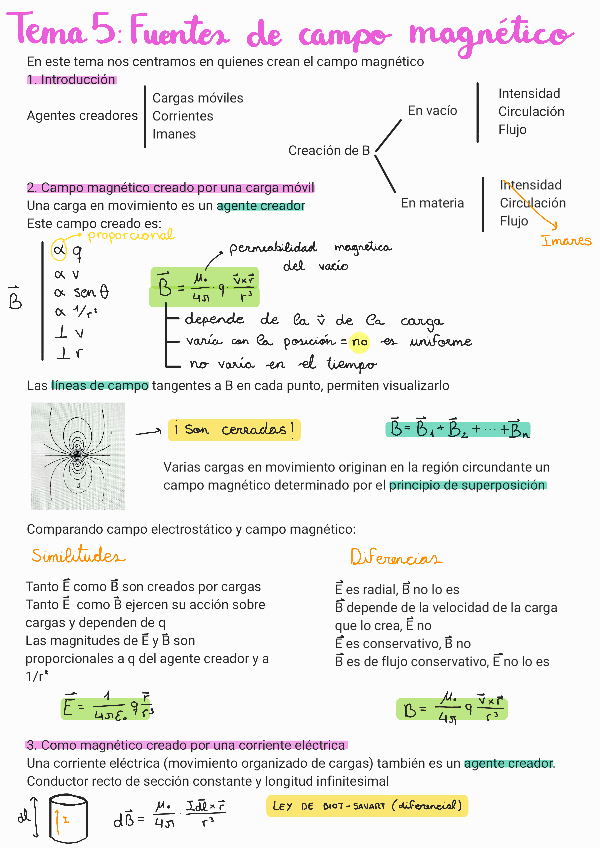 Tema 5: Fuentes de campo magnético
En este tema nos centramos en quienes crean el campo magnético
1. Introducción
Agentes creadores
Cargas móviles
Corrientes
Imanes
Creación de B
En vacío
Intensidad
Circulación
Flujo
En materia
Intensidad
Circulación
Flujo
Imanes
2. Campo magnético creado por una carga móvil
Una carga en movimiento es un agente creador
Este campo creado es:
proporcional
B⃗
α q
α v
α sen θ
α 1/r²
⊥ v
⊥ r
permeabilidad magnética
del vacío
B⃗ = μ₀/4π · q · v⃗×r⃗/r³
depende de la v⃗ de la carga
varía con la posición = no es uniforme
no varía en el tiempo
Las líneas de campo tangentes a B en cada punto, permiten visualizarlo
→ ¡Son cerradas!
B⃗ = B⃗₁ + B⃗₂ + ... + B⃗ₙ
Varias cargas en movimiento originan en la región circundante un
campo magnético determinado por el principio de superposición
Comparando campo electrostático y campo magnético:
Similitudes
Tanto E⃗ como B⃗ son creados por cargas
Tanto E⃗ como B⃗ ejercen su acción sobre
cargas y dependen de q
Las magnitudes de E⃗ y B⃗ son
proporcionales a q del agente creador y a
1/r²
E⃗ = 1/4πε₀ q r⃗/r³
Diferencias
E⃗ es radial, B⃗ no lo es
B⃗ depende de la velocidad de la carga
que lo crea, E⃗ no
E⃗ es conservativo, B⃗ no
B⃗ es de flujo conservativo, E⃗ no lo es
B = μ₀/4π q v⃗×r⃗/r³
3. Como magnético creado por una corriente eléctrica
Una corriente eléctrica (movimiento organizado de cargas) también es un agente creador.
Conductor recto de sección constante y longitud infinitesimal
dl
I
dB⃗ = μ₀/4π · Idl⃗×r⃗/r³
LEY DE BIOT-SAVART (diferencial)